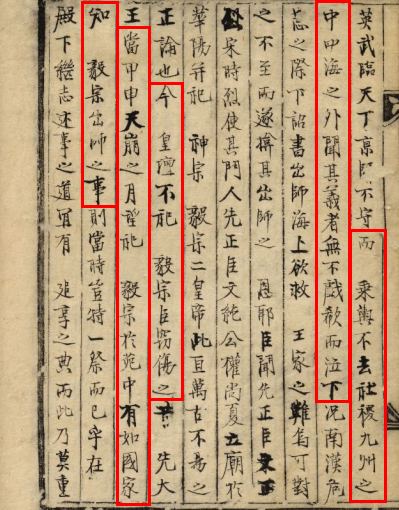 英武臨天丁京師不守而 乘輿不去社稷九州之
中四海之外聞其義者無不戲欷而泣下況南漢危
忘之際下詔書出師海上欲救 王家之難焉可對
之不至而遂揜其出師之 恩耶臣聞先正臣文正
公宋時烈使其門人先正臣文純公權尚夏立廟於
華陽并祀 神宗 毅宗二皇帝此亘萬古不易之
正論也今 皇壇不祀 毅宗臣竊傷之 先大
王當甲申天崩之月望祀 毅宗於苑中有如國家
知 毅宗出師之事則當時豈特一祭而已乎在
殿下繼志述事之道宜有 追享之典而此乃莫重